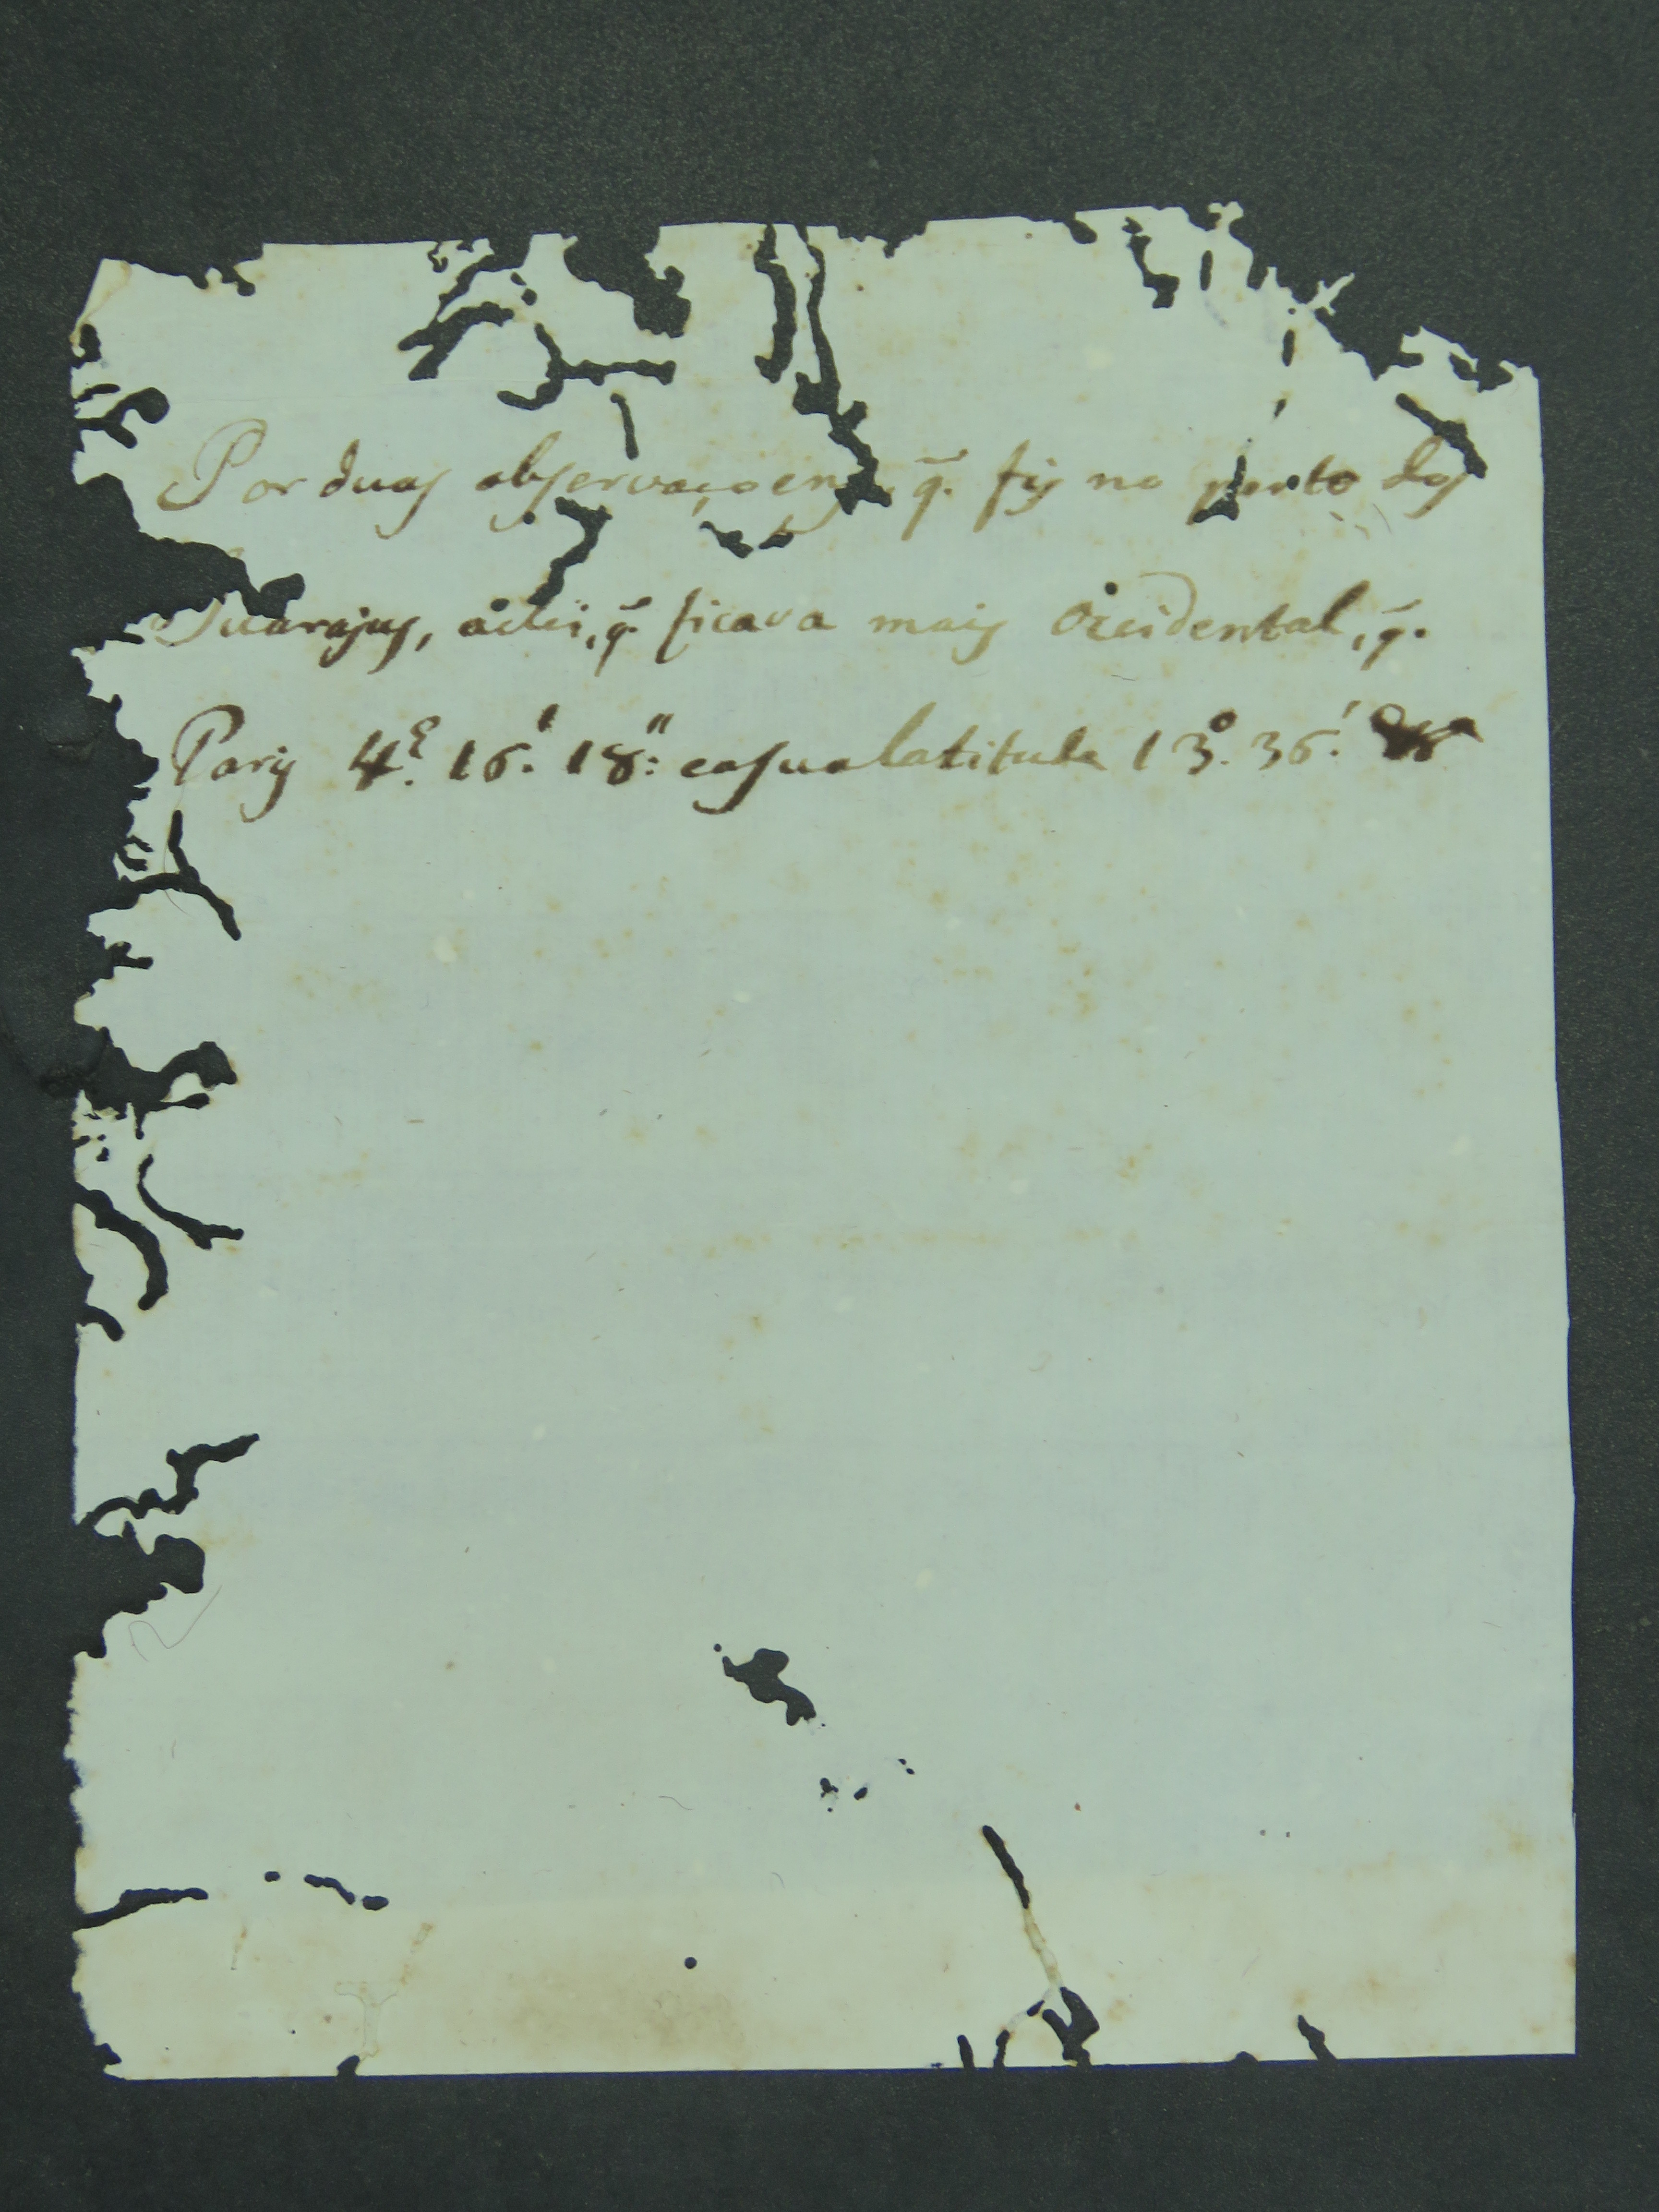 Por duas observaçoens, q̃. fis no porto dos
Guarajus, achei, q̃. ficava mais Occidental, q̃.
Paris 4.º 16.' 18:" e a sua latitude 13.º 36.'